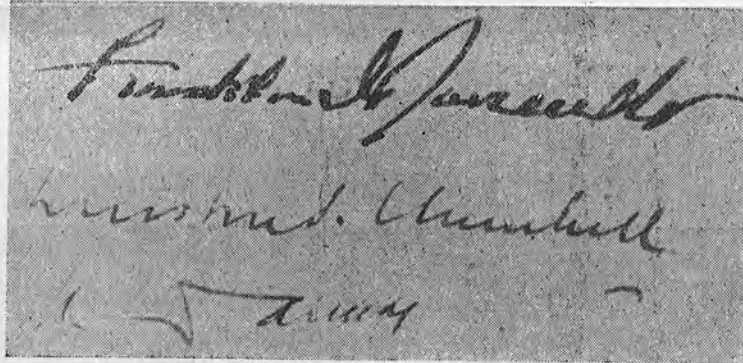 Franklin D Roosevelt
Winston S. Churchill
И. Сталин